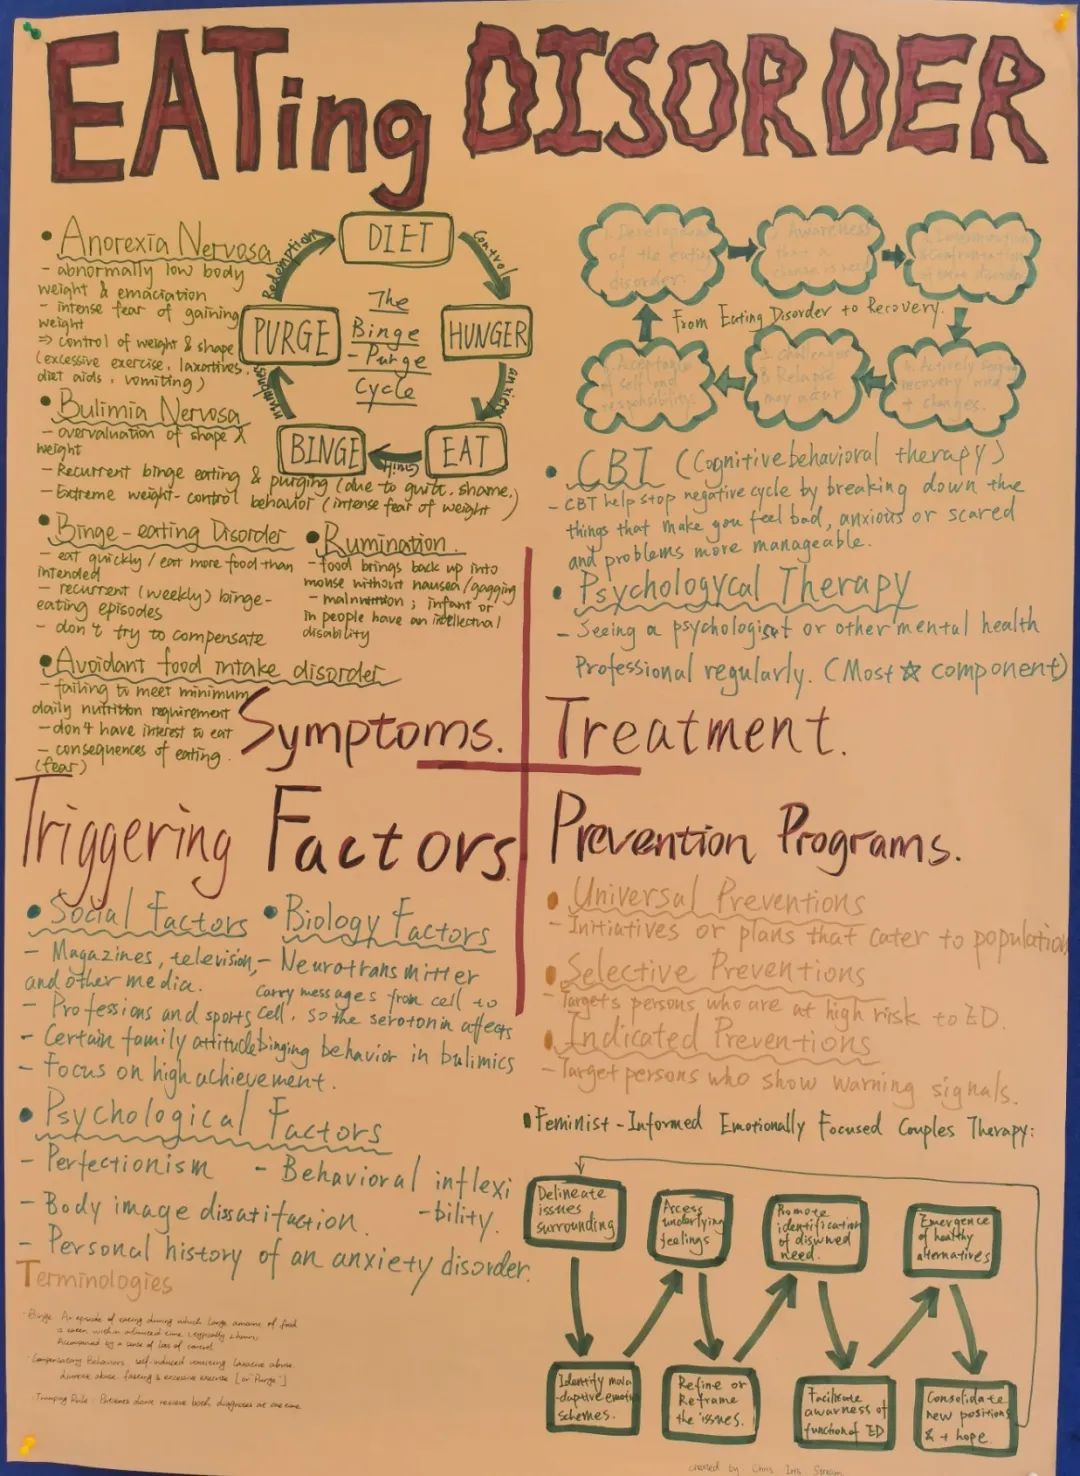 EATing DISORDER
• Anorexia Nervosa
- abnormally low body
weight & emaciation
- intense fear of gaining
weight
=> control of weight & shape
(excessive exercise, laxatives,
diet aids, vomiting)
• Bulimia Nervosa
- overvaluation of shape &
weight
- Recurrent binge eating & purging (due to guilt, shame,
- Extreme weight-control behavior (intense fear of weight)
• Binge-eating Disorder
- eat quickly / eat more food than
intended
- recurrent (weekly) binge-
eating episodes
- don't try to compensate
• Rumination.
- food brings back up into
mouse without nausea/gagging
- malnutrition; infant or
in people have an intellectual
disability
• Avoidant food intake disorder
- failing to meet minimum
daily nutrition requirement
- don't have interest to eat
- consequences of eating.
(fear)
The
Binge
-Purge
Cycle
DIET
Control
HUNGER
anxiety
EAT
Guilt
BINGE
PURGE
Redemption
Symptoms.
1. Development
of the eating
disorder.
Awareness
that a
change is need
From Eating Disorder to Recovery.
Actively
recovery and
+ changes.
Challenges
& Relapse
may occur
Acceptance
of self and
responsibility.
• CBT (Cognitive behavioral therapy)
- CBT help stop negative cycle by breaking down the
things that make you feel bad, anxious or scared
and problems more manageable.
• Psychologycal Therapy
- Seeing a psychologist or other mental health
Professional regularly. (Most ☆ component)
Treatment.
Triggering Factors.
• Social Factors
- Magazines, television,
and other media.
- Professions and sports
- Certain family attitude
- Focus on high achievement.
• Biology Factors
- Neurotransmitter
carry messages from cell to
cell, so the serotonin affects
binging behavior in bulimics
• Psychological Factors
- Perfectionism
- Behavioral inflexi
-bility.
- Body image dissatifaction
- Personal history of an anxiety disorder.
Terminologies
· Binge: An episode of eating during which large amount of food
Accompanied by a sense of loss of control
· Compensatory Behaviors: self-induced vomiting laxative abuse
diuretic abuse, fasting & excessive exercise [or "Purge"]
· Trumping Rule: Patients don't receive both diagnoses at one time.
Prevention Programs.
• Universal Preventions
- Initiatives or plans that cater to population
• Selective Preventions
- Targets persons who are at high risk to ED.
• Indicated Preventions
- Target persons who show warning signals.
• Feminist-Informed Emotionally Focused Couples Therapy:
Delineate
issues
surrounding
Access
underlying
feelings
Promote
identification
of disowned
need.
Emergence
of healthy
alternatives
Identify mala
-daptive emotion
schemes.
Refine or
Reframe
the issues.
Facilitate
awarness of
function of ED
Consolidate
new positions
& + hope.
created by Chris Iris